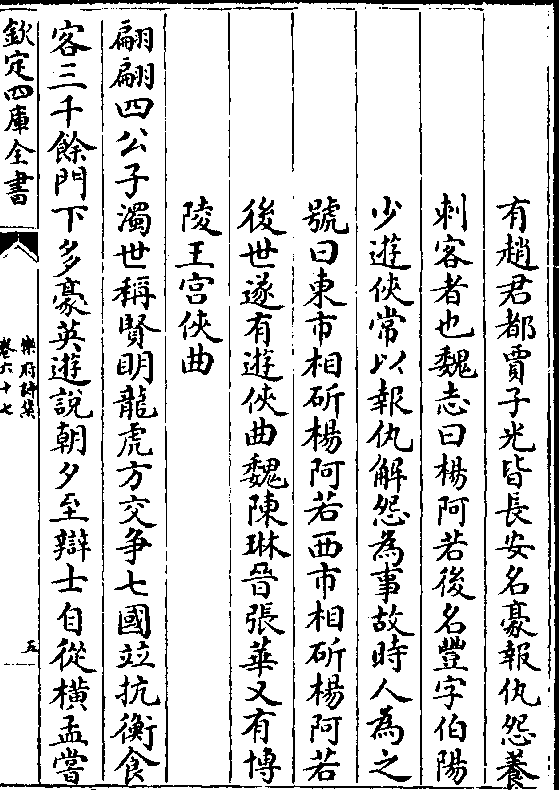 有趙君都賈子光皆長安名豪報仇怨養
刺客者也魏志曰楊阿若後名豐字伯陽
少遊俠常以報仇解怨為事故時人為之
號曰東市相斫楊阿若西市相斫楊阿若
後世遂有遊俠曲魏陳琳晉張華又有博
陵王宫俠曲
翩翩四公子濁世稱賢明龍虎方交争七國竝抗衡食
客三千餘門下多豪英遊說朝夕至辯士自從橫孟嘗
欽定四庫全書
樂府詩集
卷六十七
五